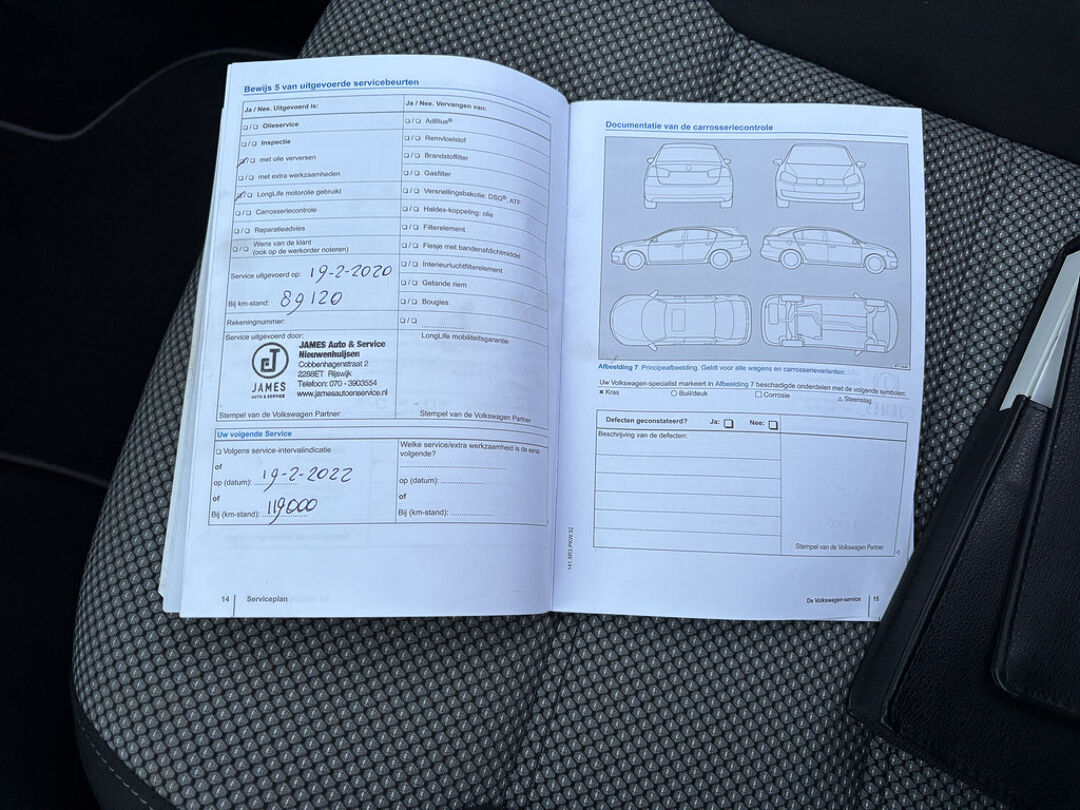 Bewijs 5 van uitgevoerde servicebeurten
Ja / Nee. Uitgevoerd is:
❑/❑ Olieservice
❑/❑ Inspectie
❑/❑ met olie verversen
❑/❑ met extra werkzaamheden
❑/❑ LongLife motorolie gebruikt
❑/❑ Carrosseriecontrole
❑/❑ Reparatieadvies
❑/❑ Wens van de klant
(ook op de werkorder noteren)
Service uitgevoerd op: 19-2-2020
Bij km-stand: 89120
Rekeningnummer:
Service uitgevoerd door:
JAMES Auto & Service
Nieuwenhuijsen
Cobbenhagenstraat 2
2288ET Rijswijk
Telefoon: 070 - 3903554
www.jamesautoenservice.nl
JAMES
AUTO & SERVICE
Stempel van de Volkswagen Partner
Ja / Nee. Vervangen van:
❑/❑ AdBlue®
❑/❑ Remvloeistof
❑/❑ Brandstoffilter
❑/❑ Gasfilter
❑/❑ Versnellingsbakolie: DSG®, ATF
❑/❑ Haldex-koppeling: olie
❑/❑ Filterelement
❑/❑ Flesje met bandenafdichtmiddel
❑/❑ Interieurluchtfilterelement
❑/❑ Getande riem
❑/❑ Bougies
❑/❑ ....................
LongLife mobiliteitsgarantie:
Stempel van de Volkswagen Partner
Uw volgende Service
❑ Volgens service-intervalindicatie
of
op (datum): 19-2-2022
of
Bij (km-stand): 119000
Welke service/extra werkzaamheid is de eerst-
volgende?
op (datum): ....................
of
Bij (km-stand): ....................
14 Serviceplan
Documentatie van de carrosseriecontrole
Afbeelding 7 Principeafbeelding. Geldt voor alle wagens en carrosserievarianten.
Uw Volkswagen-specialist markeert in Afbeelding 7 beschadigde onderdelen met de volgende symbolen:
✕ Kras ○ Buil/deuk □ Corrosie △ Steenslag
Defecten geconstateerd? Ja: ❑ Nee: ❑
Beschrijving van de defecten:
Stempel van de Volkswagen Partner
141.5R3.PKW.32
De Volkswagen-service 15